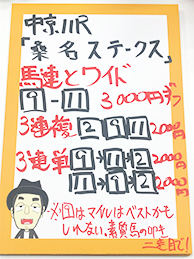 中京11R
「桑名ステークス」
馬連とワイド
9-11 3000円ズツ
3連複 2 9 11 2000円
3連単 9→11→2 2000円
11→9→2 2000円
マイルはベストかも
しれない、素質馬の叩き
二走目で!